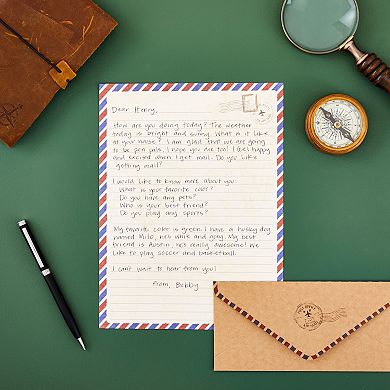 Dear Henry,
How are you doing today? The weather
today is bright and sunny. What is it like
at your house? I am glad that we are going
to be pen pals. I hope you are too! I get happy
and excited when I get mail. Do you like
getting mail?
I would like to know more about you:
What is your favorite color?
Do you have any pets?
Who is your best friend?
Do you play any sports?
My favorite color is green. I have a husky dog
named Milo, he's white and gray. My best
friend is Austin, he's really awesome! We
like to play soccer and basketball.
I can't wait to hear from you!
From, Bobby